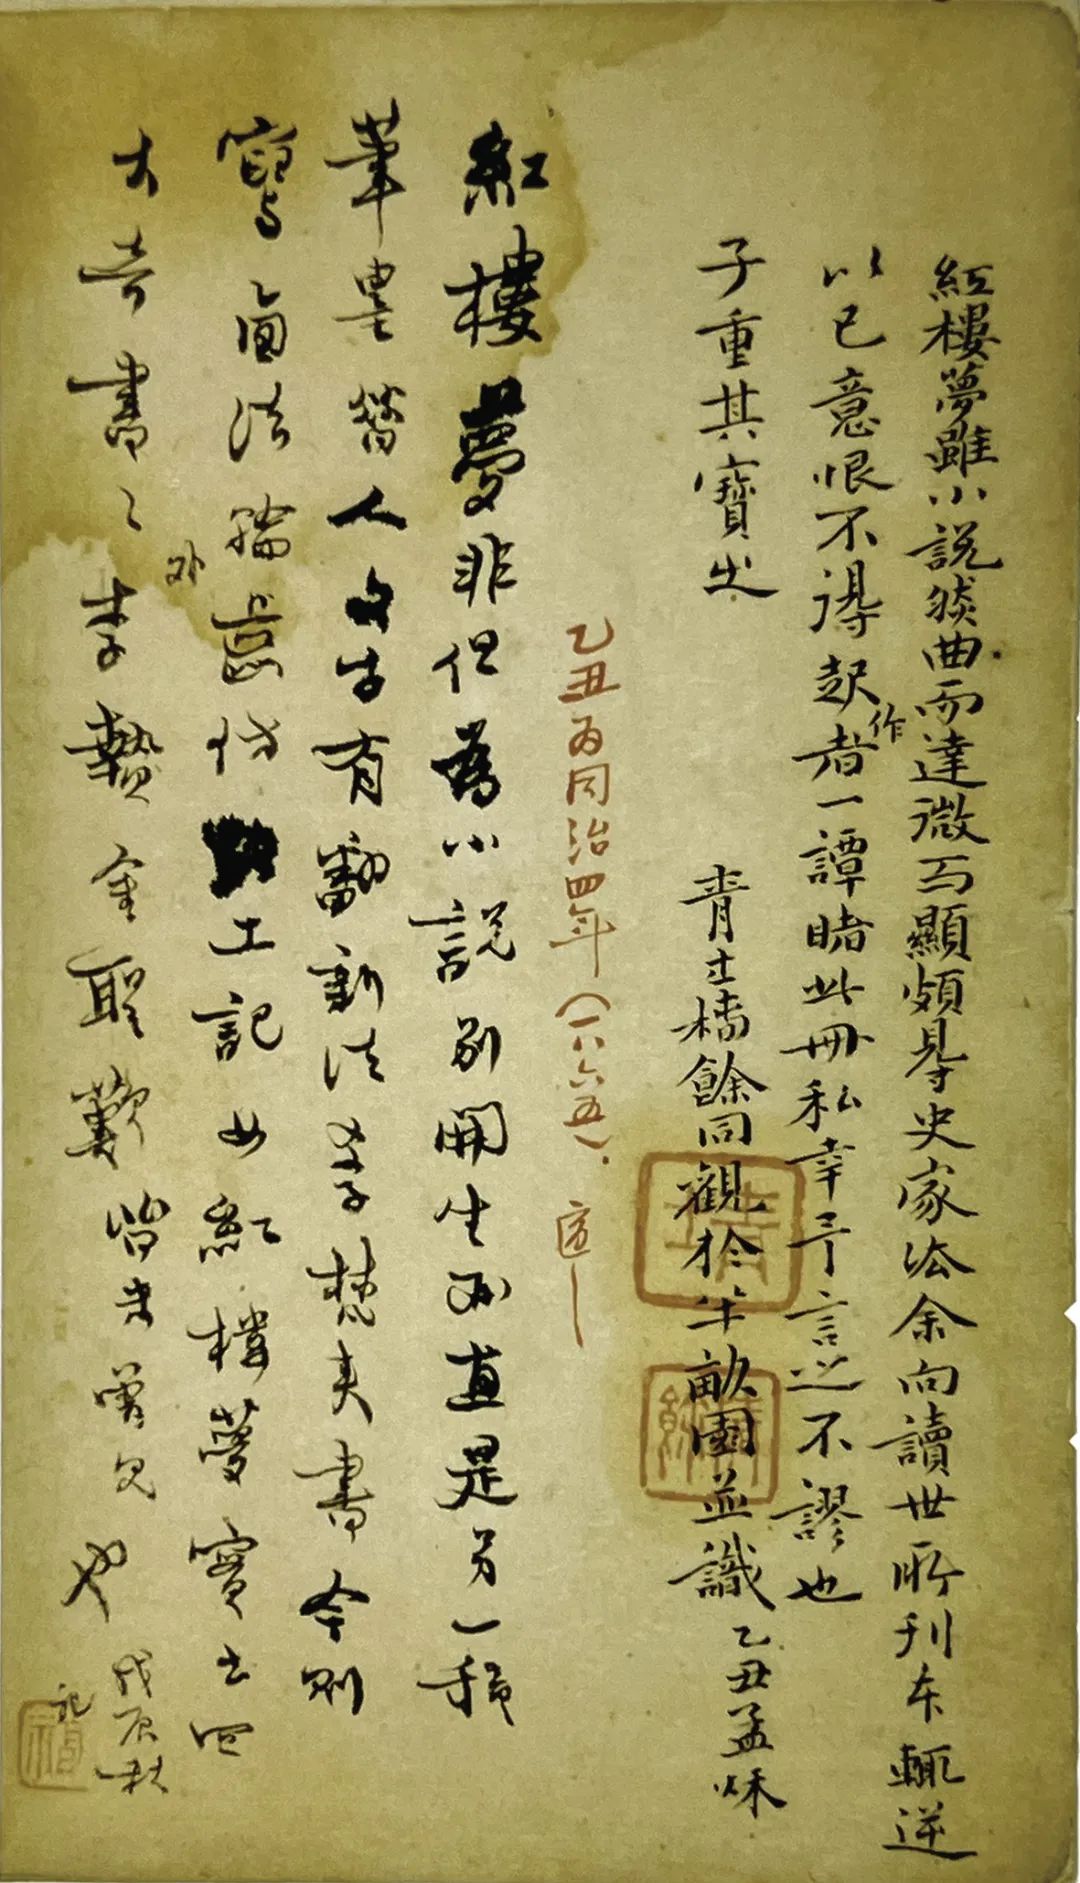 紅樓夢雖小說然曲而達微而顯頗得史家法余向讀世所刊本輒逆
以己意恨不得起作者一譚睹此冊私幸予言之不謬也
子重其寶之
青士椿餘同觀於半畝園並識乙丑孟秋
乙丑為同治四年(一八六五). 適之
紅樓夢非但為小說別開生面直是另一種
筆墨昔人文字有翻新法學梵夾書今則
寫西法輪齒仿工記如紅樓夢實出四
大奇書之外李贄金聖歎皆未曾見也戊辰秋
記
青士
椿餘